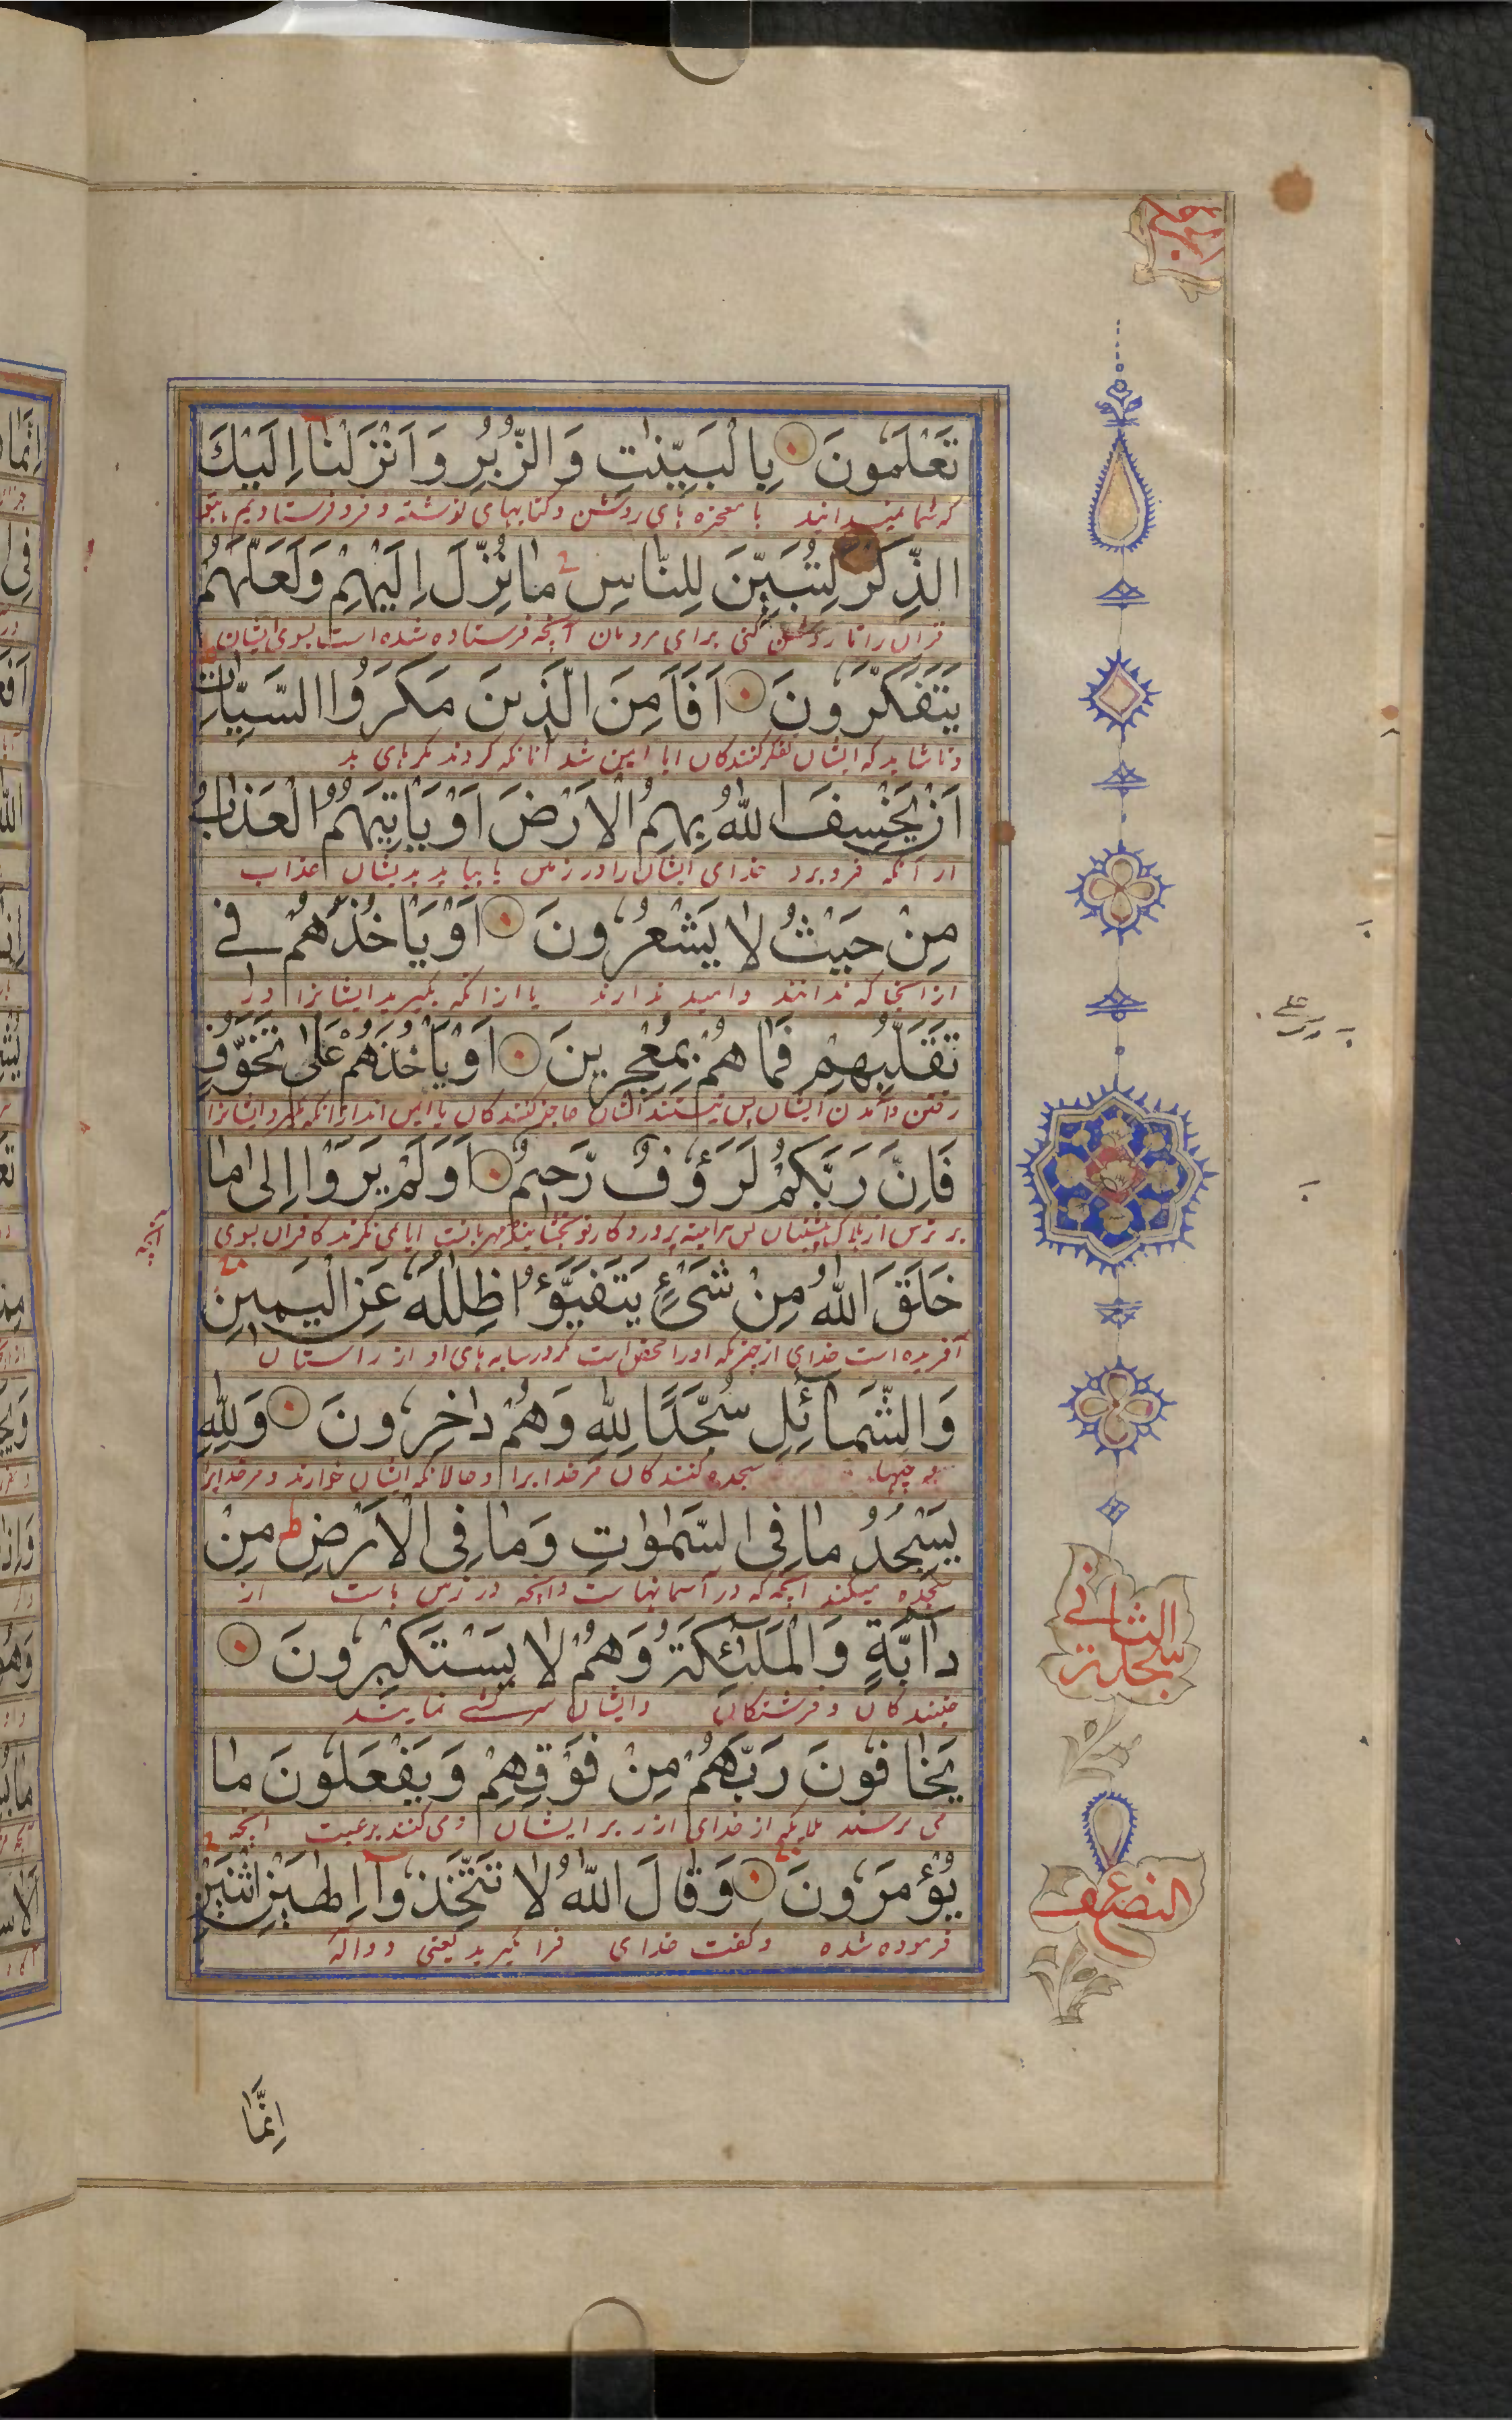 تَعْلَمُونَ بِالْبَيِّنٰتِ وَالزُّبُرِ وَاَنْزَلْنَا اِلَيْكَ
که شما نمیدانید با معجزه های روشن و کتابهای نوشته و فرو فرستادیم بتو
الذِّكْرَ لِتُبَيِّنَ لِلنَّاسِ مَا نُزِّلَ اِلَيْهِمْ وَلَعَلَّهُمْ
قران را تا روشن کنی برای مردمان آنچه فرستاده شده است بسوی ایشان
يَتَفَكَّرُونَ اَفَاَمِنَ الَّذِينَ مَكَرُوا السَّيِّاٰتِ
و تا شاید که ایشان تفکر کنندکان ایا ایمن شد آنانکه کردند مکرهای بد
اَنْ يَخْسِفَ اللّٰهُ بِهِمُ الْاَرْضَ اَوْ يَاْتِيَهُمُ الْعَذَابُ
از آنکه فرو برد خدای ایشان را در زمین یا بیاید بدیشان عذاب
مِنْ حَيْثُ لَا يَشْعُرُونَ اَوْ يَاْخُذَهُمْ فِي
ازانجا که ندانند و امید ندارند یا ازانکه بگیرید ایشانرا در
تَقَلُّبِهِمْ فَمَا هُمْ بِمُعْجِزِينَ اَوْ يَاْخُذَهُمْ عَلٰى تَخَوُّفٍ
رفتن و آمدن ایشان پس نیستند ایشان عاجز کنندکان یا ایمن اند ازانکه بگیرد ایشانرا
فَاِنَّ رَبَّكُمْ لَرَؤُفٌ رَحِيمٌ اَوَلَمْ يَرَوْا اِلٰى مَا
بر ترس از هلاک پس هراینه پروردکار تو بخشاینده مهربانست ایا نمی نکرند کافران بسوی
آنچه
خَلَقَ اللّٰهُ مِنْ شَيْءٍ يَتَفَيَّؤُا ظِلٰلُهُ عَنِ الْيَمِينِ
آفریده است خدای از چیزکه اورا سایه های او از راستان
وَالشَّمَآئِلِ سُجَّدًا لِلّٰهِ وَهُمْ دَاخِرُونَ وَلِلّٰهِ
و چپها سجده کنندکان مر خدایرا و حالانکه ایشان خوارند و مر خدایرا
يَسْجُدُ مَا فِى السَّمٰوٰتِ وَمَا فِى الْاَرْضِ مِنْ
سجده میکند آنچه که در آسمانهاست و آنچه در زمین هاست از
دَآبَّةٍ وَالْمَلٰٓئِكَةُ وَهُمْ لَا يَسْتَكْبِرُونَ
جنبندکان و فرشتکان و ایشان سرکشی نمایند
يَخَافُونَ رَبَّهُمْ مِنْ فَوْقِهِمْ وَيَفْعَلُونَ مَا
می ترسند ملایکه از خدای از زبر ایشان و می کنند برغبت انچه
يُؤْمَرُونَ وَقَالَ اللّٰهُ لَا تَتَّخِذُوٓا اِلٰهَيْنِ اثْنَيْنِ
فرموده شده و کفت خدای فرا مگیرید یعنی دو اله
اِنَّمَا
السجدة
الثانی
النصف